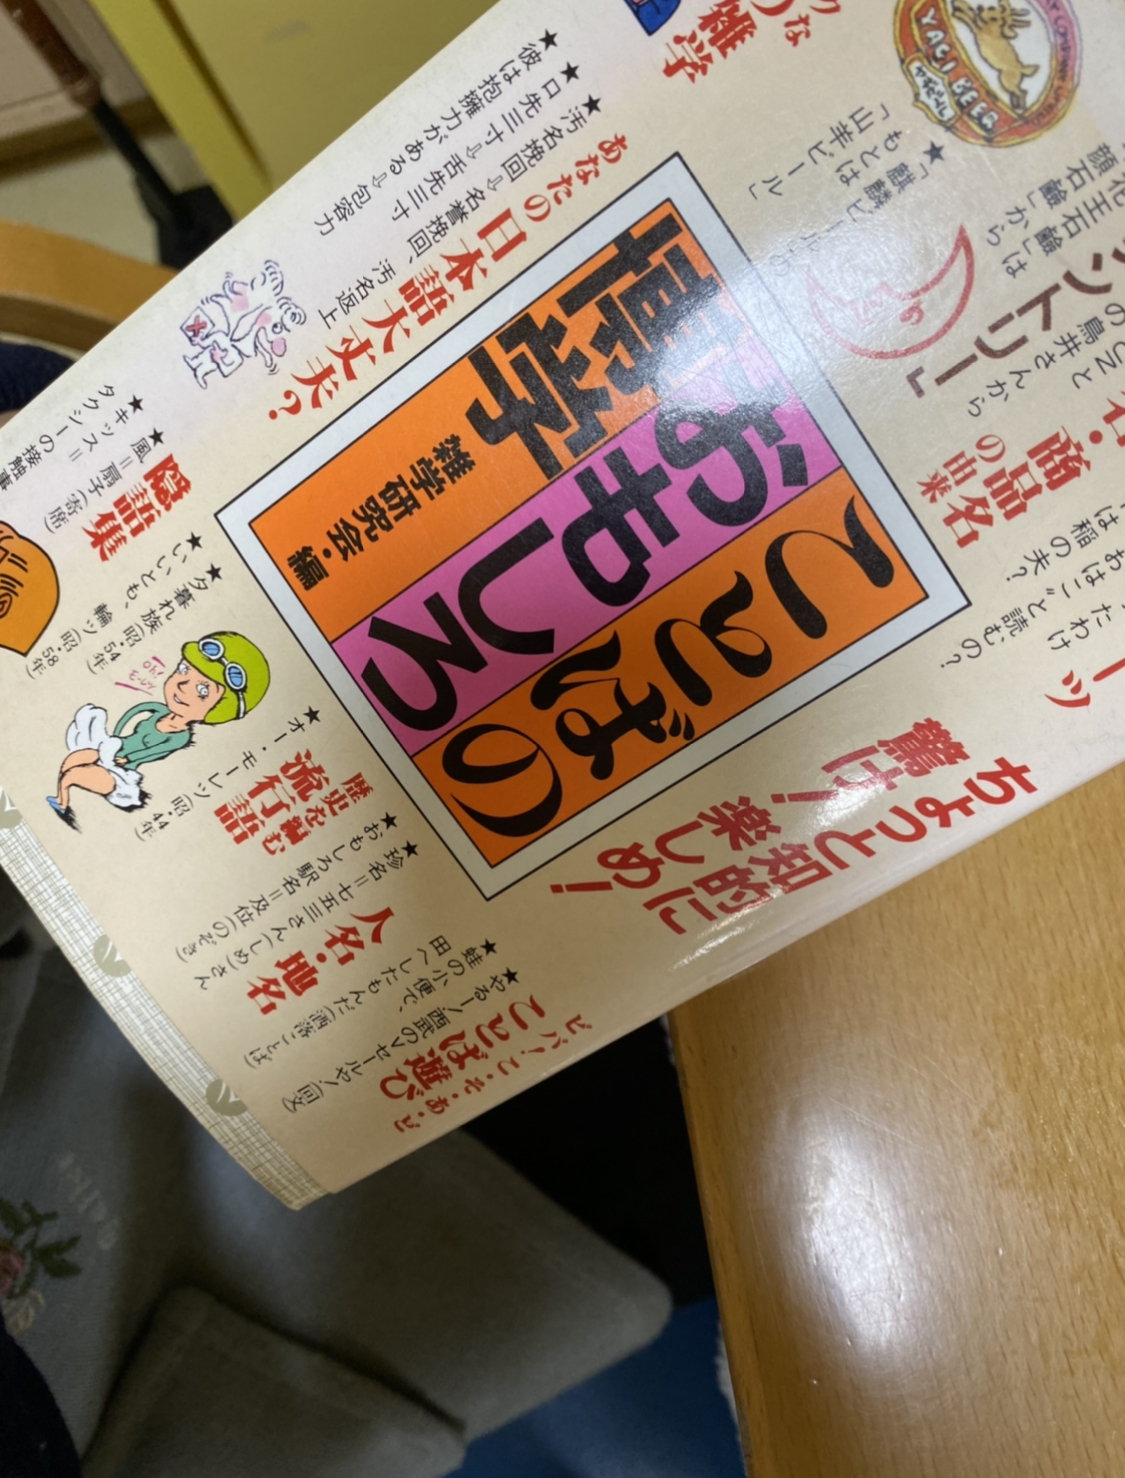 ことばの
おもしろ
博学
雑学研究会・編
ちょっと知的に
驚け！楽しめ！
商品名
の由来
ントリー」
の鳥井さんから
花王石鹼」は
顔石鹼」から
★「麒麟ビール」の
もとは
「山羊ビール」
YAGI BEER
やぎビール
雑学
あなたの日本語大丈夫？
★汚名挽回⇨名誉挽回、汚名返上
★口先三寸⇨舌先三寸
★彼は抱擁力がある⇨包容力
隠語集
★風＝扇子（寄席）
★キッス＝
タクシーの接触事
歴史を編む
流行語
★オー・モーレツ（昭44年）
★夕暮れ族（昭54年）
★いいとも、輪ッ（昭58年）
Oh!
モーレツ
人名・地名
★珍名＝七五三さん（しめ）さん
★おもしろ駅名＝及位（のぞき）
ビバ！こ・そ・あ・ど
ことば遊び
★やるー！西武のVセールや！（回文）
★蛙の小便で、
田へしたもんだ（洒落ことば）
おはこ”と読むの？
は稲の夫？
たわけ